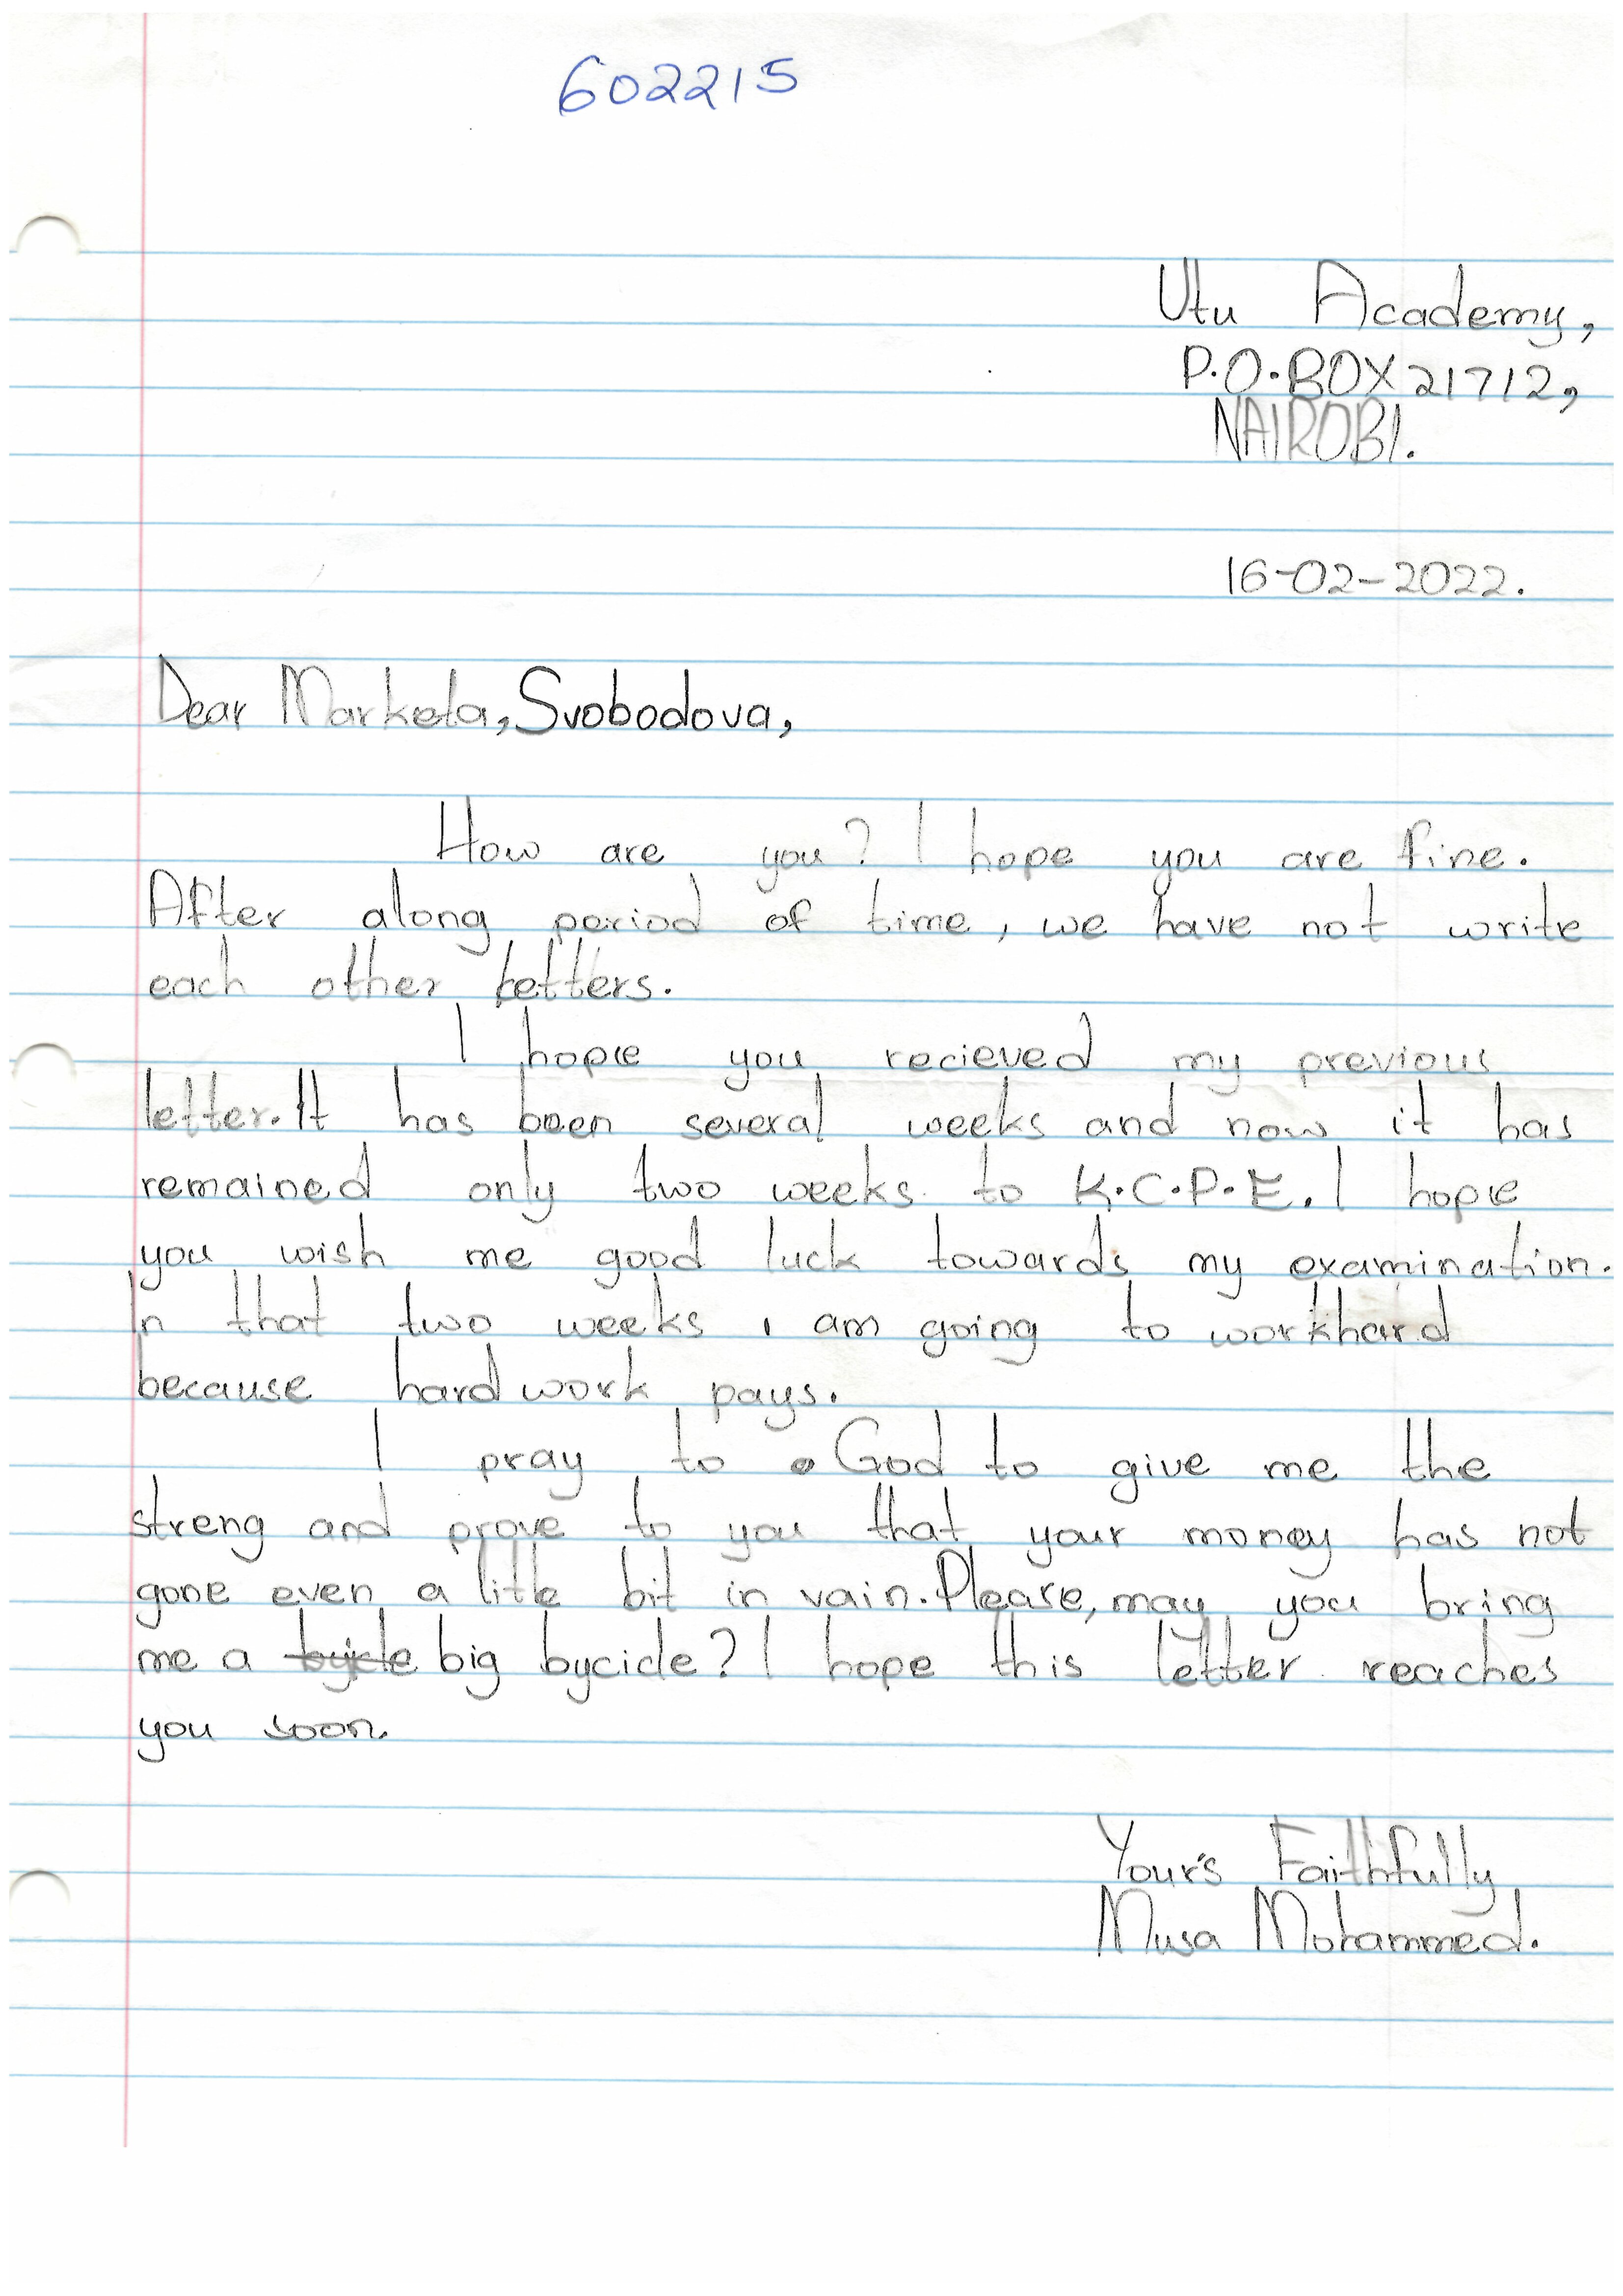 602215
Utu Academy,
P.O.BOX 21712,
NAIROBI.
16-02-2022.
Dear Marketa, Svobodova,
How are you? I hope you are fine.
After along period of time, we have not write
each other letters.
I hope you recieved my previous
letter. It has been several weeks and now it has
remained only two weeks to K.C.P.E. I hope
you wish me good luck towards my examination.
In that two weeks i am going to workhard
because hardwork pays.
I pray to God to give me the
streng and prove to you that your money has not
gone even a little bit in vain. Please, may you bring
me a big bycicle? I hope this letter reaches
you soon.
Your's Faithfully
Musa Mohammed.